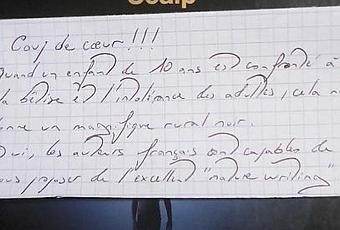 Scalp
Coup de cœur !!!
Quand un enfant de 10 ans est confronté à
la bêtise et l'intolérance des adultes, cela n
onne un magnifique rural noir.
Oui, les auteurs français sont capables de
ous proposer de l'excellent "nature writing"